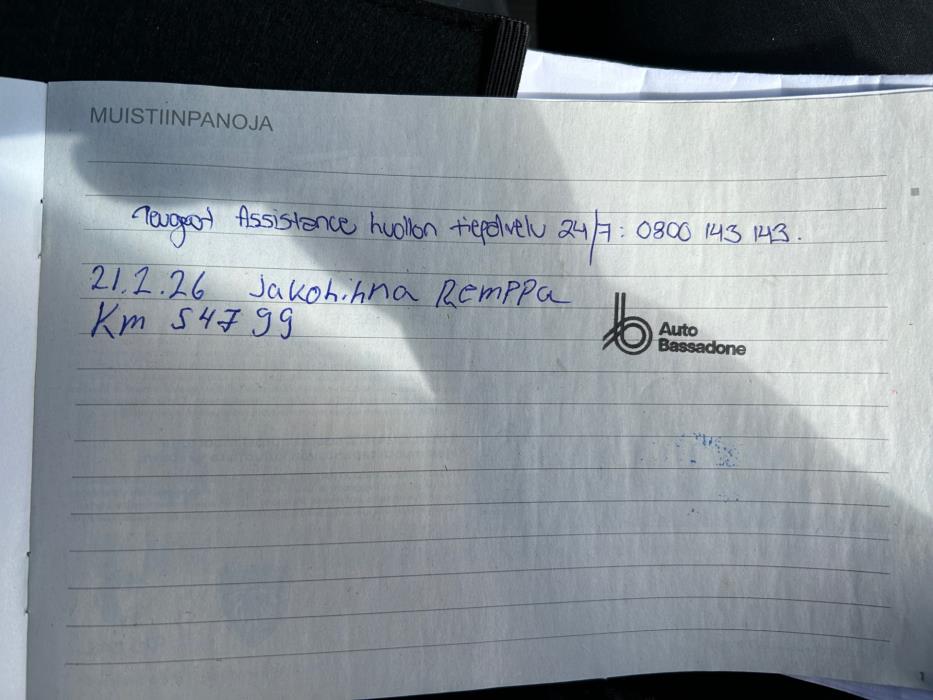 MUISTIINPANOJA
Peugeot Assistance huollon tiepalvelu 24/7: 0800 143 143.
21.2.26 Jakohihna Remppa
Km 54799
Auto
Bassadone